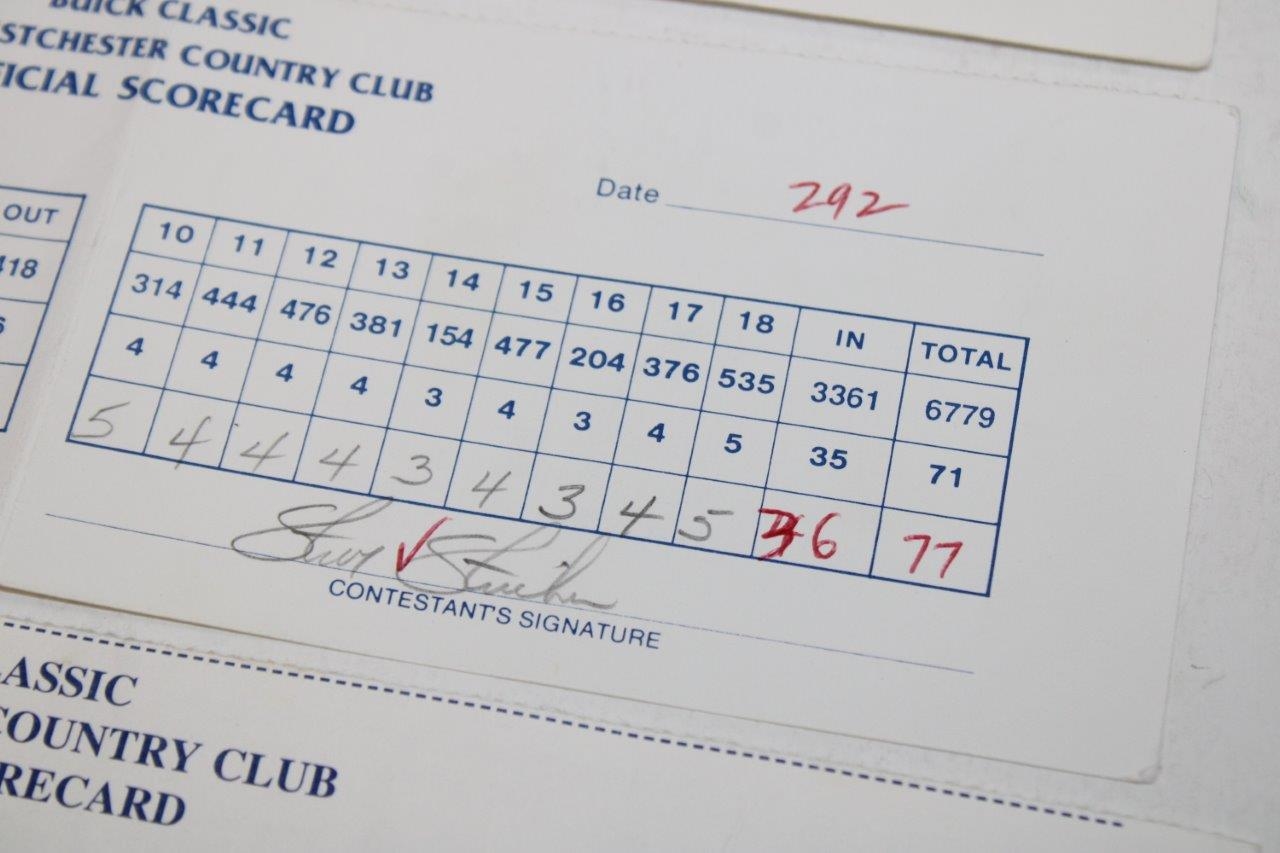 BUICK CLASSIC
STCHESTER COUNTRY CLUB
ICIAL SCORECARD
Date 292
OUT
418
10 11 12 13 14 15 16 17 18 IN TOTAL
314 444 476 381 154 477 204 376 535 3361 6779
4 4 4 4 3 4 3 4 5 35 71
5 4 4 4 3 4 3 4 5 36 77
CONTESTANT'S SIGNATURE
ASSIC
COUNTRY CLUB
RECARD